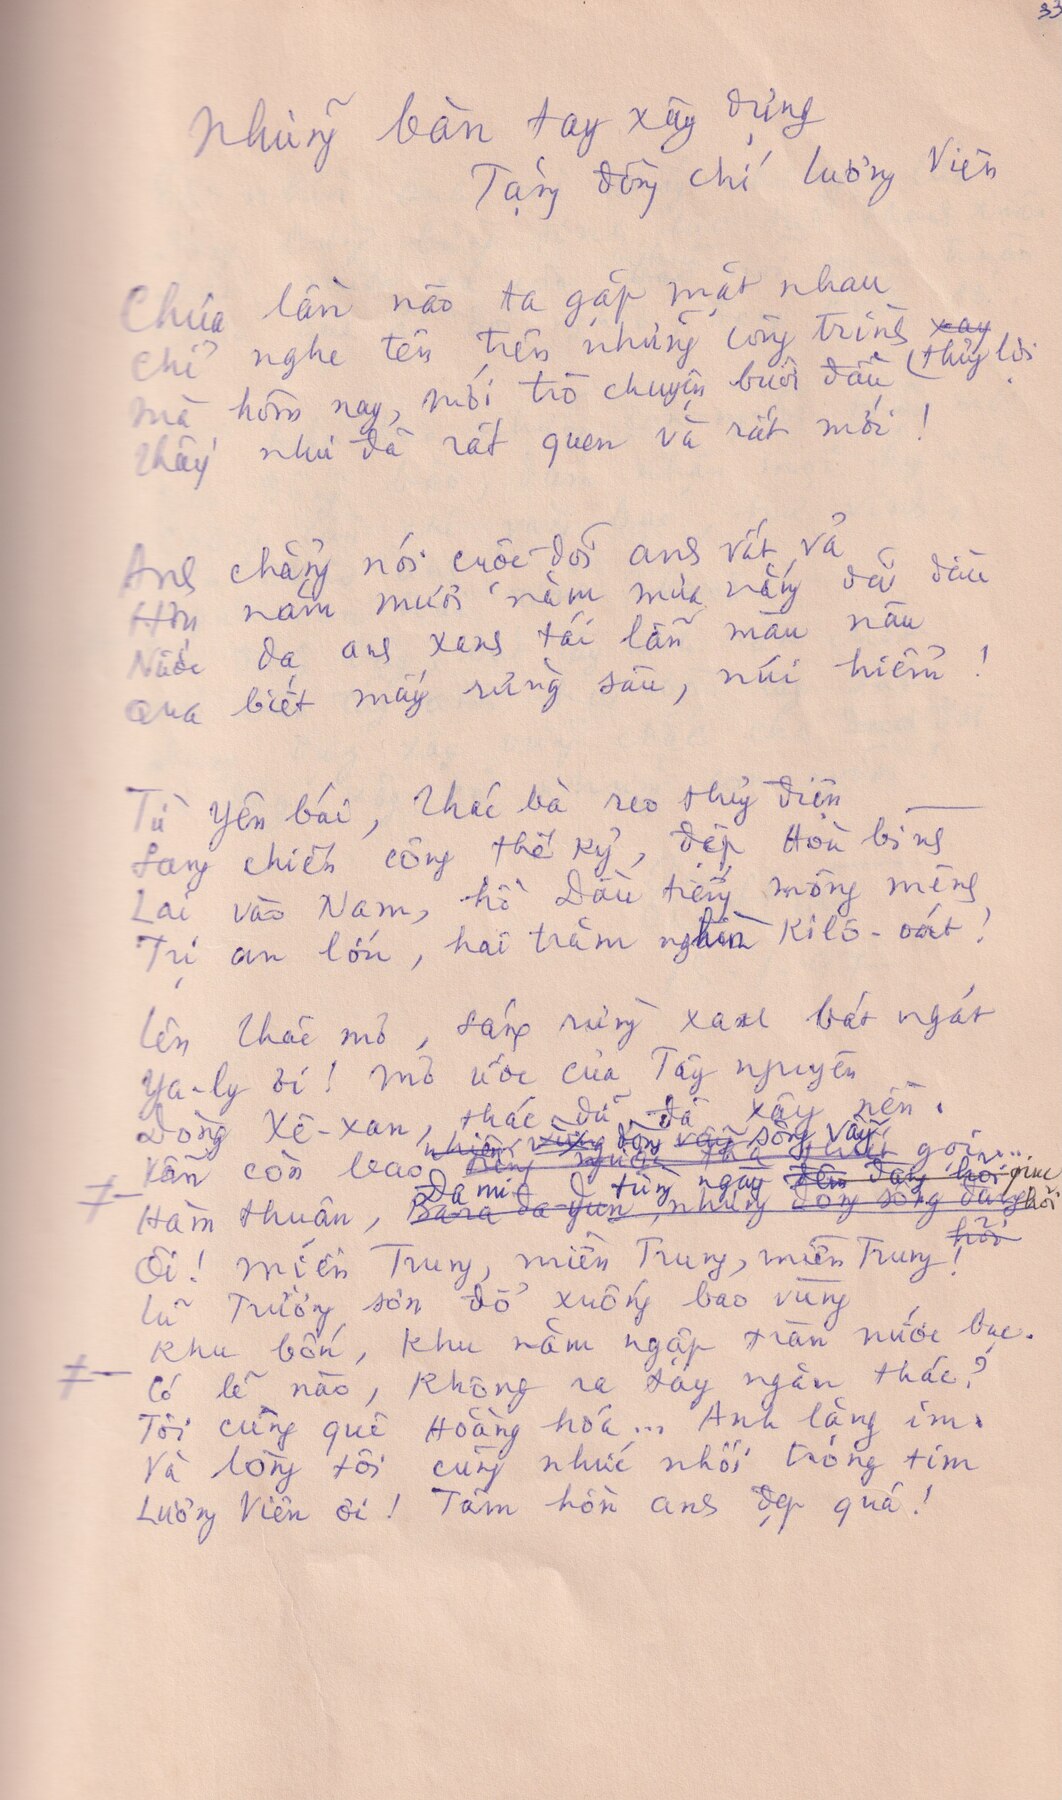 33
Những bàn tay xây dựng
Tặng đồng chí Lương Viên
Chưa lần nào ta gặp mặt nhau
Chỉ nghe tên trên những công trình xay
(thủy lợi
Mà hôm nay, mới trò chuyện buổi đầu
Thấy như đã rất quen và rất mới!
Anh chẳng nói cuộc đời anh vất vả
Hơn năm mươi năm mưa nắng dãi dầu
Nước da anh xanh tái lẫn màu nâu
Qua biết mấy rừng sâu, núi hiểm!
Từ Yên bái, thác bà reo thủy điện
Sang chiến công thế kỷ, đập Hoà bình
Lại vào Nam, hồ Dầu tiếng mông mênh
Trị an lớn, hai trăm nghìn Kilô-oát!
Lên thác mơ, sáng rừng xanh bát ngát
Ya-ly ơi! Mơ ước của Tây nguyên
Dòng Xê-xan, thác dữ, đá xây nền.
nhiên vùng dòng vẫy sông vẫy
Vẫn còn bao gọi...
Đa mi từng ngày đêm đang hỏi giục
Hàm thuận, Bara đa-yun, những dòng sông đang hỏi
hỏi
Ôi! miền Trung, miền Trung, miền Trung!
Lũ Trường sơn đổ xuống bao vùng
Khu bốn, khu năm ngập tràn nước bạc.
Có lẽ nào, không ra tay ngăn thác?
Tôi cùng quê Hoằng hóa... Anh lặng im.
Và lòng tôi cũng nhức nhối trong tim
Lương Viên ơi! Tâm hồn anh đẹp quá!